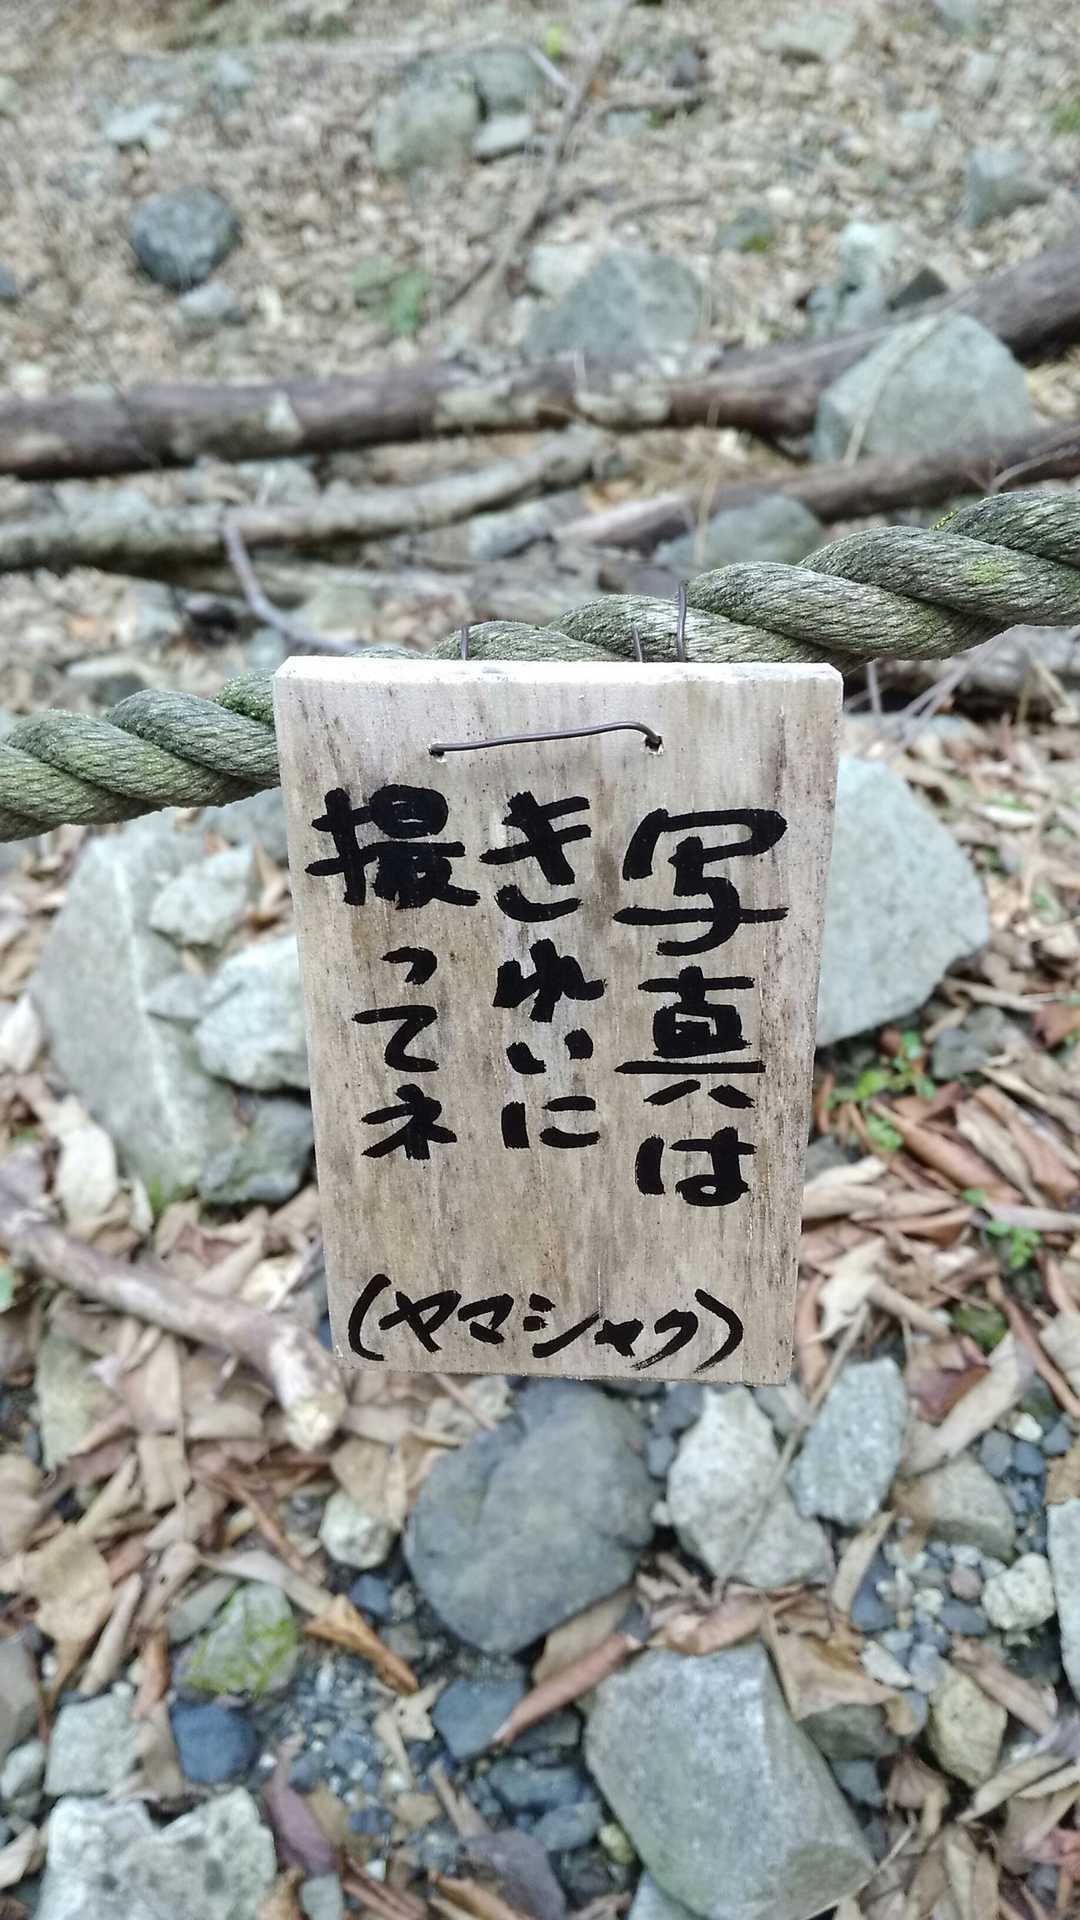 写真は
きれいに
撮ってネ
(ヤマシャク)